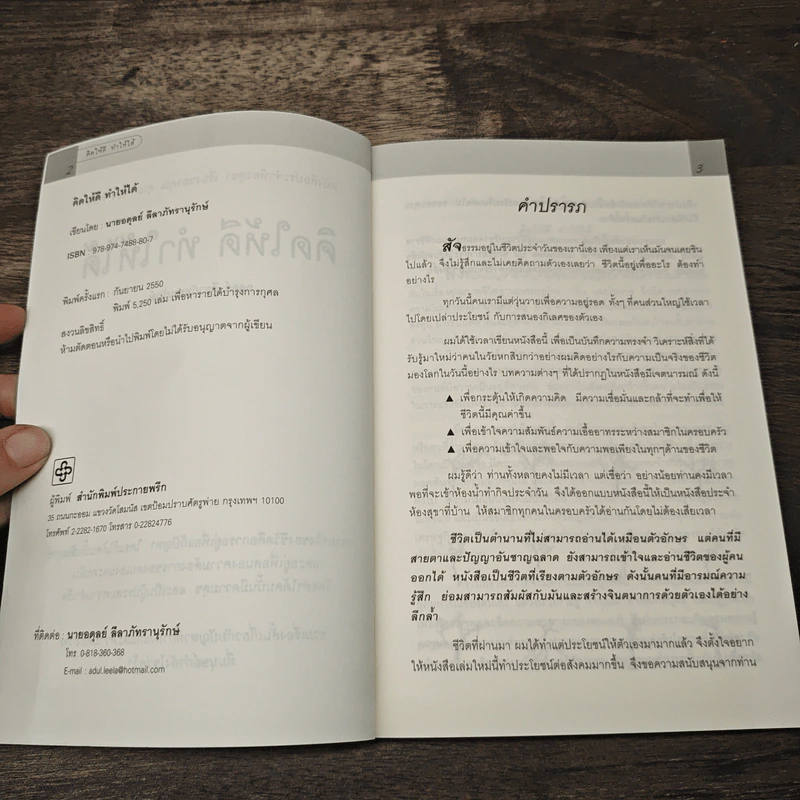 2
คิดให้ดี ทำให้ได้
คิดให้ดี ทำให้ได้
เขียนโดย : นายอดุลย์ ลีลาภัทรานุรักษ์
ISBN : 978-974-7488-80-7
พิมพ์ครั้งแรก : กันยายน 2550
พิมพ์ 5,250 เล่ม เพื่อหารายได้บำรุงการกุศล
สงวนลิขสิทธิ์
ห้ามคัดตอนหรือนำไปพิมพ์โดยไม่ได้รับอนุญาตจากผู้เขียน
ผู้พิมพ์ สำนักพิมพ์ประกายพรึก
35 ถนนกะออม แขวงวัดโสมนัส เขตป้อมปราบศัตรูพ่าย กรุงเทพฯ 10100
โทรศัพท์ 2-2282-1670 โทรสาร 0-22824776
ที่ติดต่อ : นายอดุลย์ ลีลาภัทรานุรักษ์
โทร. 0-818-360-368
E-mail : adul.leela@hotmail.com
3
คำปรารภ
สัจธรรมอยู่ในชีวิตประจำวันของเรานี่เอง เพียงแต่เราเห็นมันจนเคยชิน
ไปแล้ว จึงไม่รู้สึกและไม่เคยถามตัวเองเลยว่า ชีวิตนี้อยู่เพื่ออะไร ต้องทำ
อย่างไร
ทุกวันนี้คนเรามีแต่วุ่นวายเพื่อความอยู่รอด ทั้งๆ ที่คนส่วนใหญ่ใช้เวลา
ไปโดยเปล่าประโยชน์ กับการสนองกิเลสของตัวเอง
ผมได้ใช้เวลาเขียนหนังสือนี้ เพื่อเป็นบันทึกความทรงจำ วิเคราะห์สิ่งที่ได้
รับรู้มาใหม่ว่าคนในวัยหกสิบกว่าอย่างผมคิดอย่างไรกับความเป็นจริงของชีวิต
มองโลกในวันนี้อย่างไร บทความต่างๆ ที่ได้ปรากฏในหนังสือมีเจตนารมณ์ ดังนี้
▲ เพื่อกระตุ้นให้เกิดความคิด มีความเชื่อมั่นและกล้าที่จะทำเพื่อให้
ชีวิตนี้มีคุณค่าขึ้น
▲ เพื่อเข้าใจความสัมพันธ์ความเอื้ออาทรระหว่างสมาชิกในครอบครัว
▲ เพื่อความเข้าใจและพอใจกับความพอเพียงในทุกๆด้านของชีวิต
ผมรู้ดีว่า ท่านทั้งหลายคงไม่มีเวลา แต่เชื่อว่า อย่างน้อยท่านคงมีเวลา
พอที่จะเข้าห้องน้ำทำกิจประจำวัน จึงได้ออกแบบหนังสือนี้ให้เป็นหนังสือประจำ
ห้องสุขาที่บ้าน ให้สมาชิกทุกคนในครอบครัวได้อ่านกันโดยไม่ต้องเสียเวลา
ชีวิตเป็นตำนานที่ไม่สามารถอ่านได้เหมือนตัวอักษร แต่คนที่มี
สายตาและปัญญาอันชาญฉลาด ยังสามารถเข้าใจและอ่านชีวิตของผู้คน
ออกได้ หนังสือเป็นชีวิตที่เรียงตามตัวอักษร ดังนั้นคนที่มีอารมณ์ความ
รู้สึก ย่อมสามารถสัมผัสกับมันและสร้างจินตนาการด้วยตัวเองได้อย่าง
ลึกล้ำ
ชีวิตที่ผ่านมา ผมได้ทำแต่ประโยชน์ให้ตัวเองมามากแล้ว จึงตั้งใจอยาก
ให้หนังสือเล่มใหม่นี้ทำประโยชน์ต่อสังคมมากขึ้น จึงขอความสนับสนุนจากท่าน